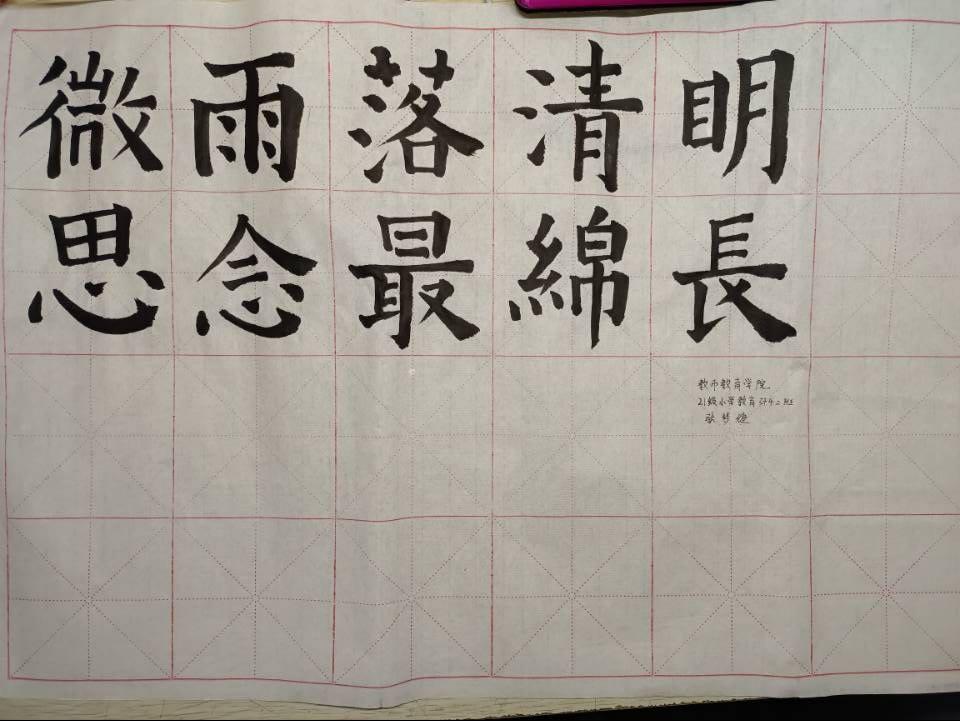 微雨落清明
思念最綿長
教师教育学院
21级小学教育